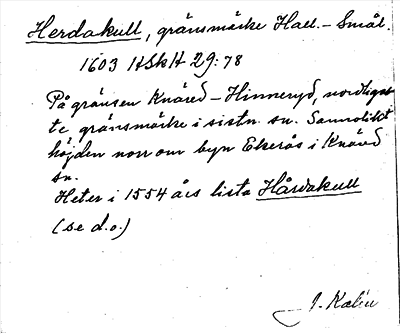 Herdakull, gränsmärke Hall.-Smål.
1603 HSkH 29:78
På gränsen Knäred-Hinneryd, nordligas-
te gränsmärke i sistn. sn. Sannolikt
höjden norr om byn Ekerås i Knäred
sn.
Heter i 1554 års lista Hårdakull
(se d.o.)
J. Kalén